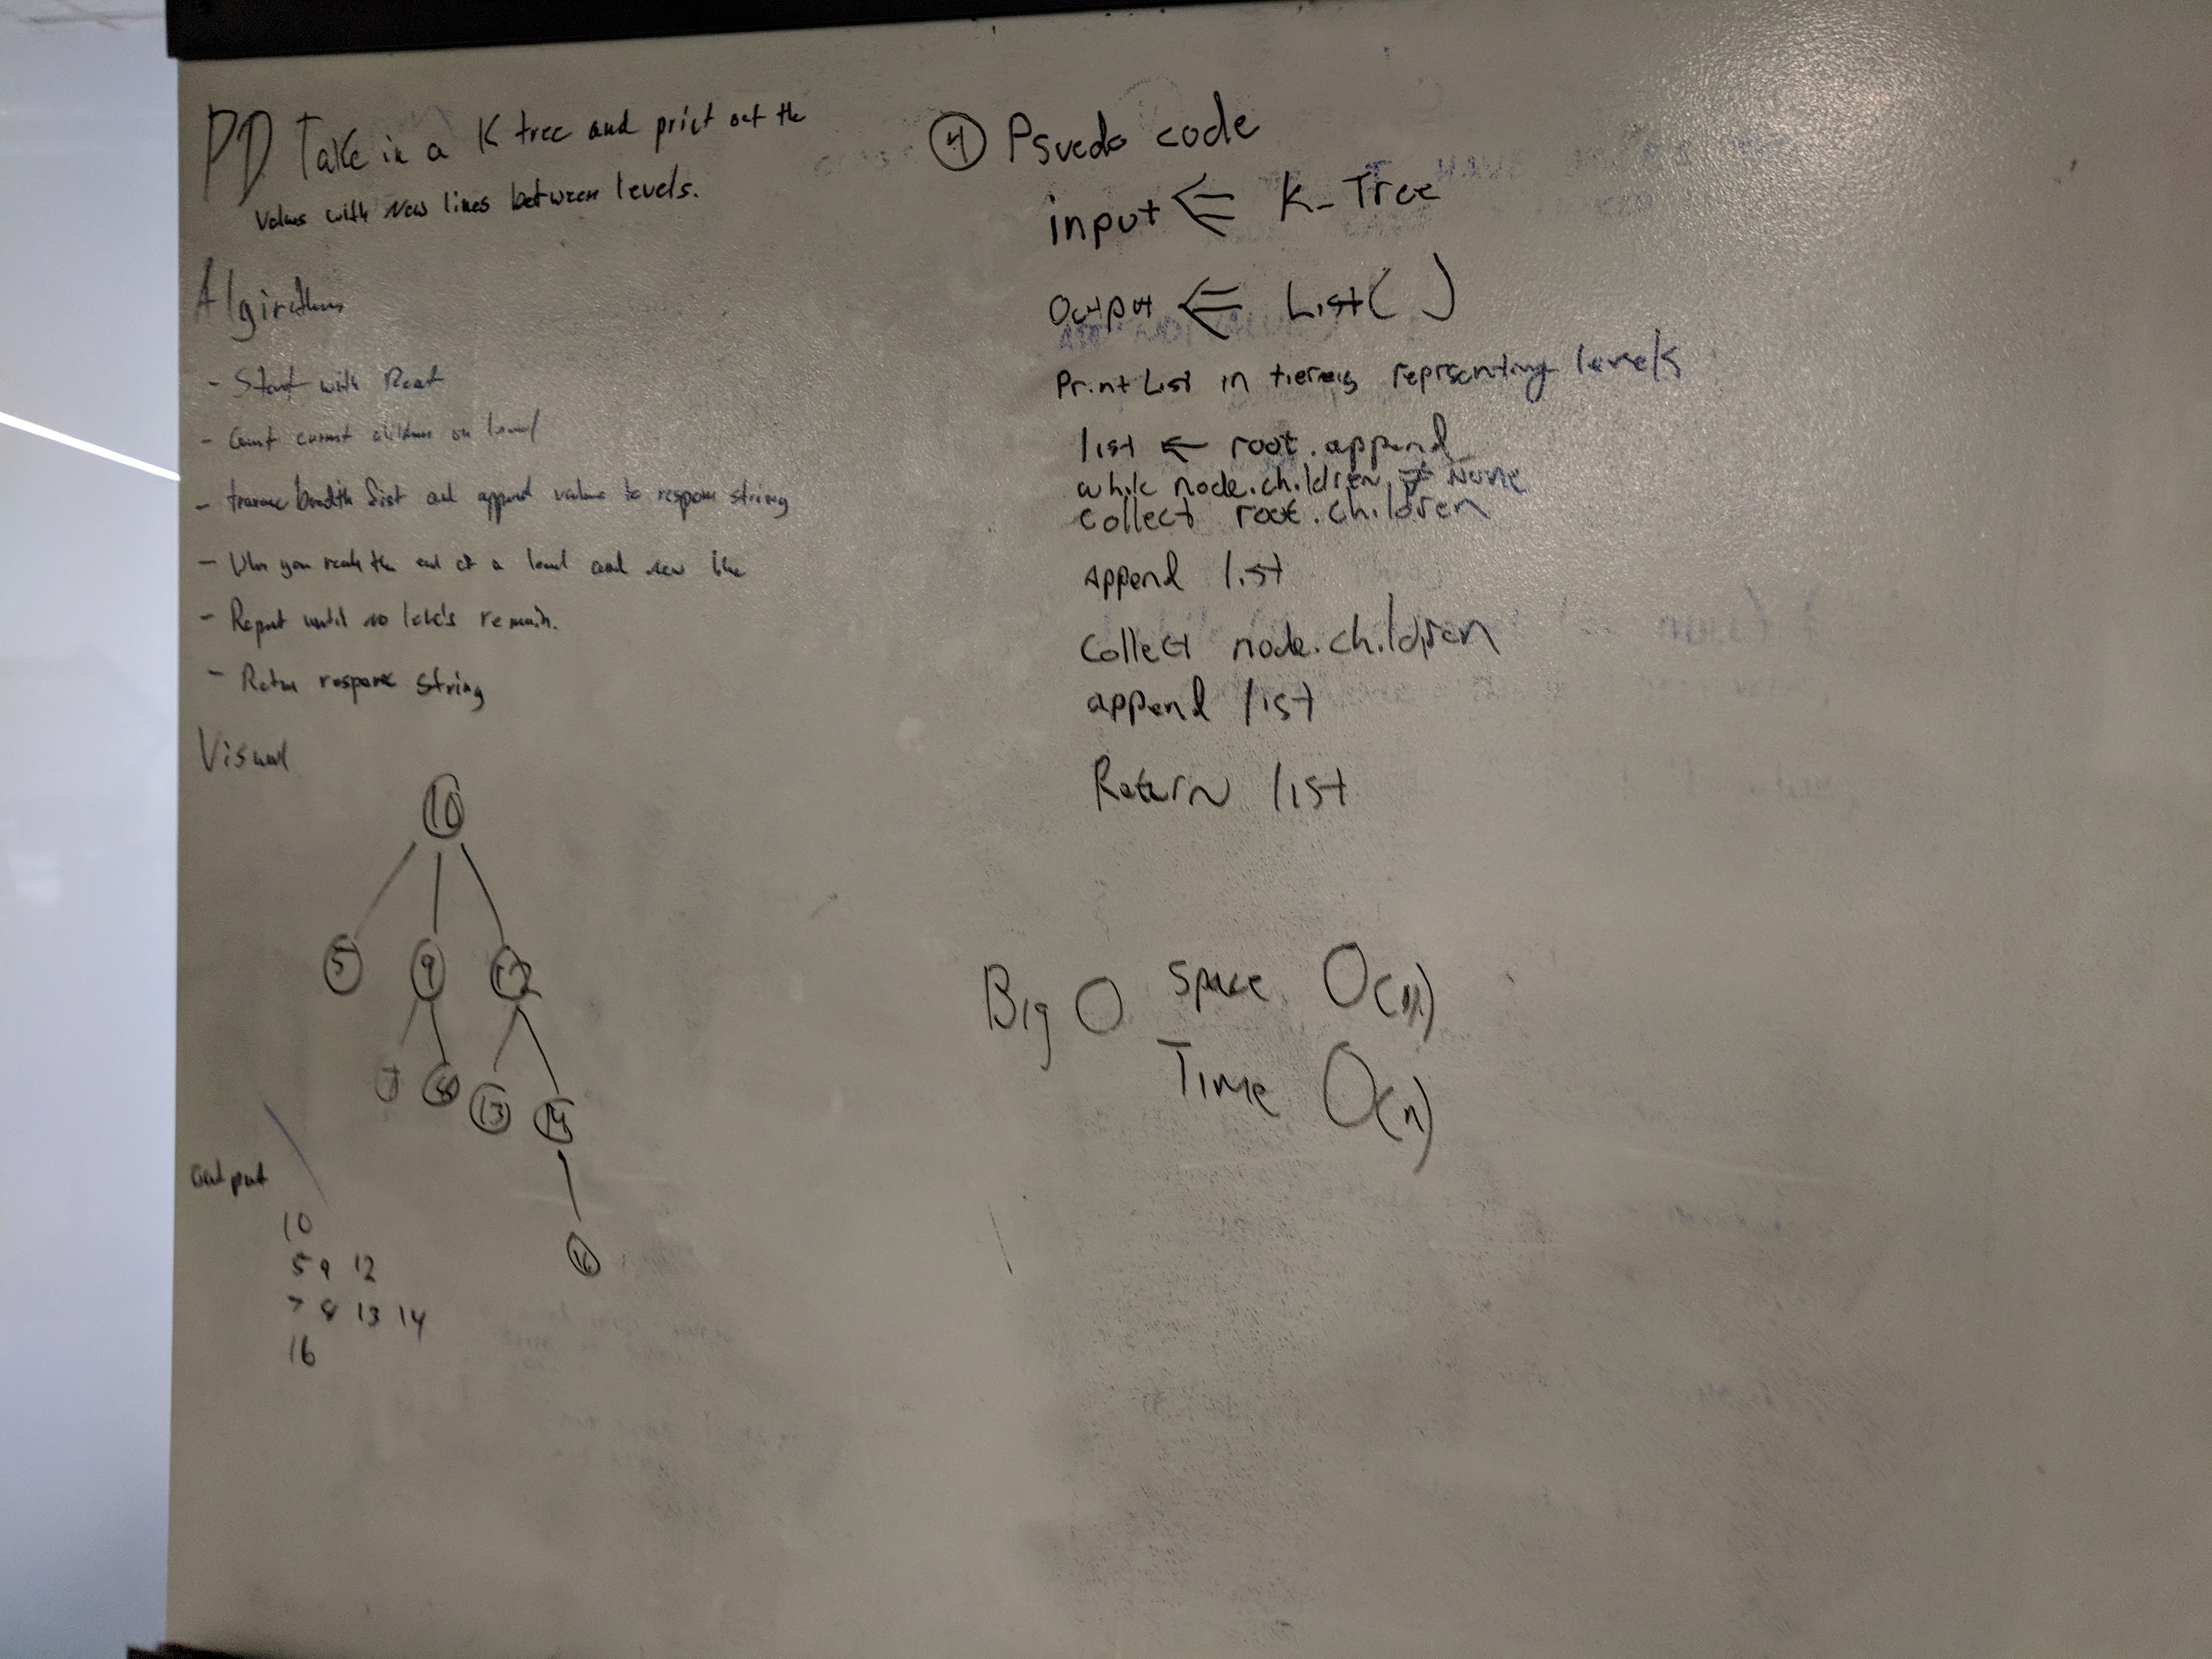 PD Take in a K tree and print out the
values with New lines between levels.
Algirathm
- Start with Root
- Count current children on level
- traverse breadth first and append values to respons string
- When you reach the end of a level and new line
- Repeat until no levels remain.
- Return response string
Visual
10
5 9 12
7 8 13 14
16
output
10
5 9 12
7 8 13 14
16
4 Psvedo code
input ⇐ K_Tree
Output ⇐ List( )
Print List in representing levels
list ← root.append
while node.children ≠ None
collect root.children
append list
Collect node.children
append list
Return list
Big O Space O(n)
Time O(n)